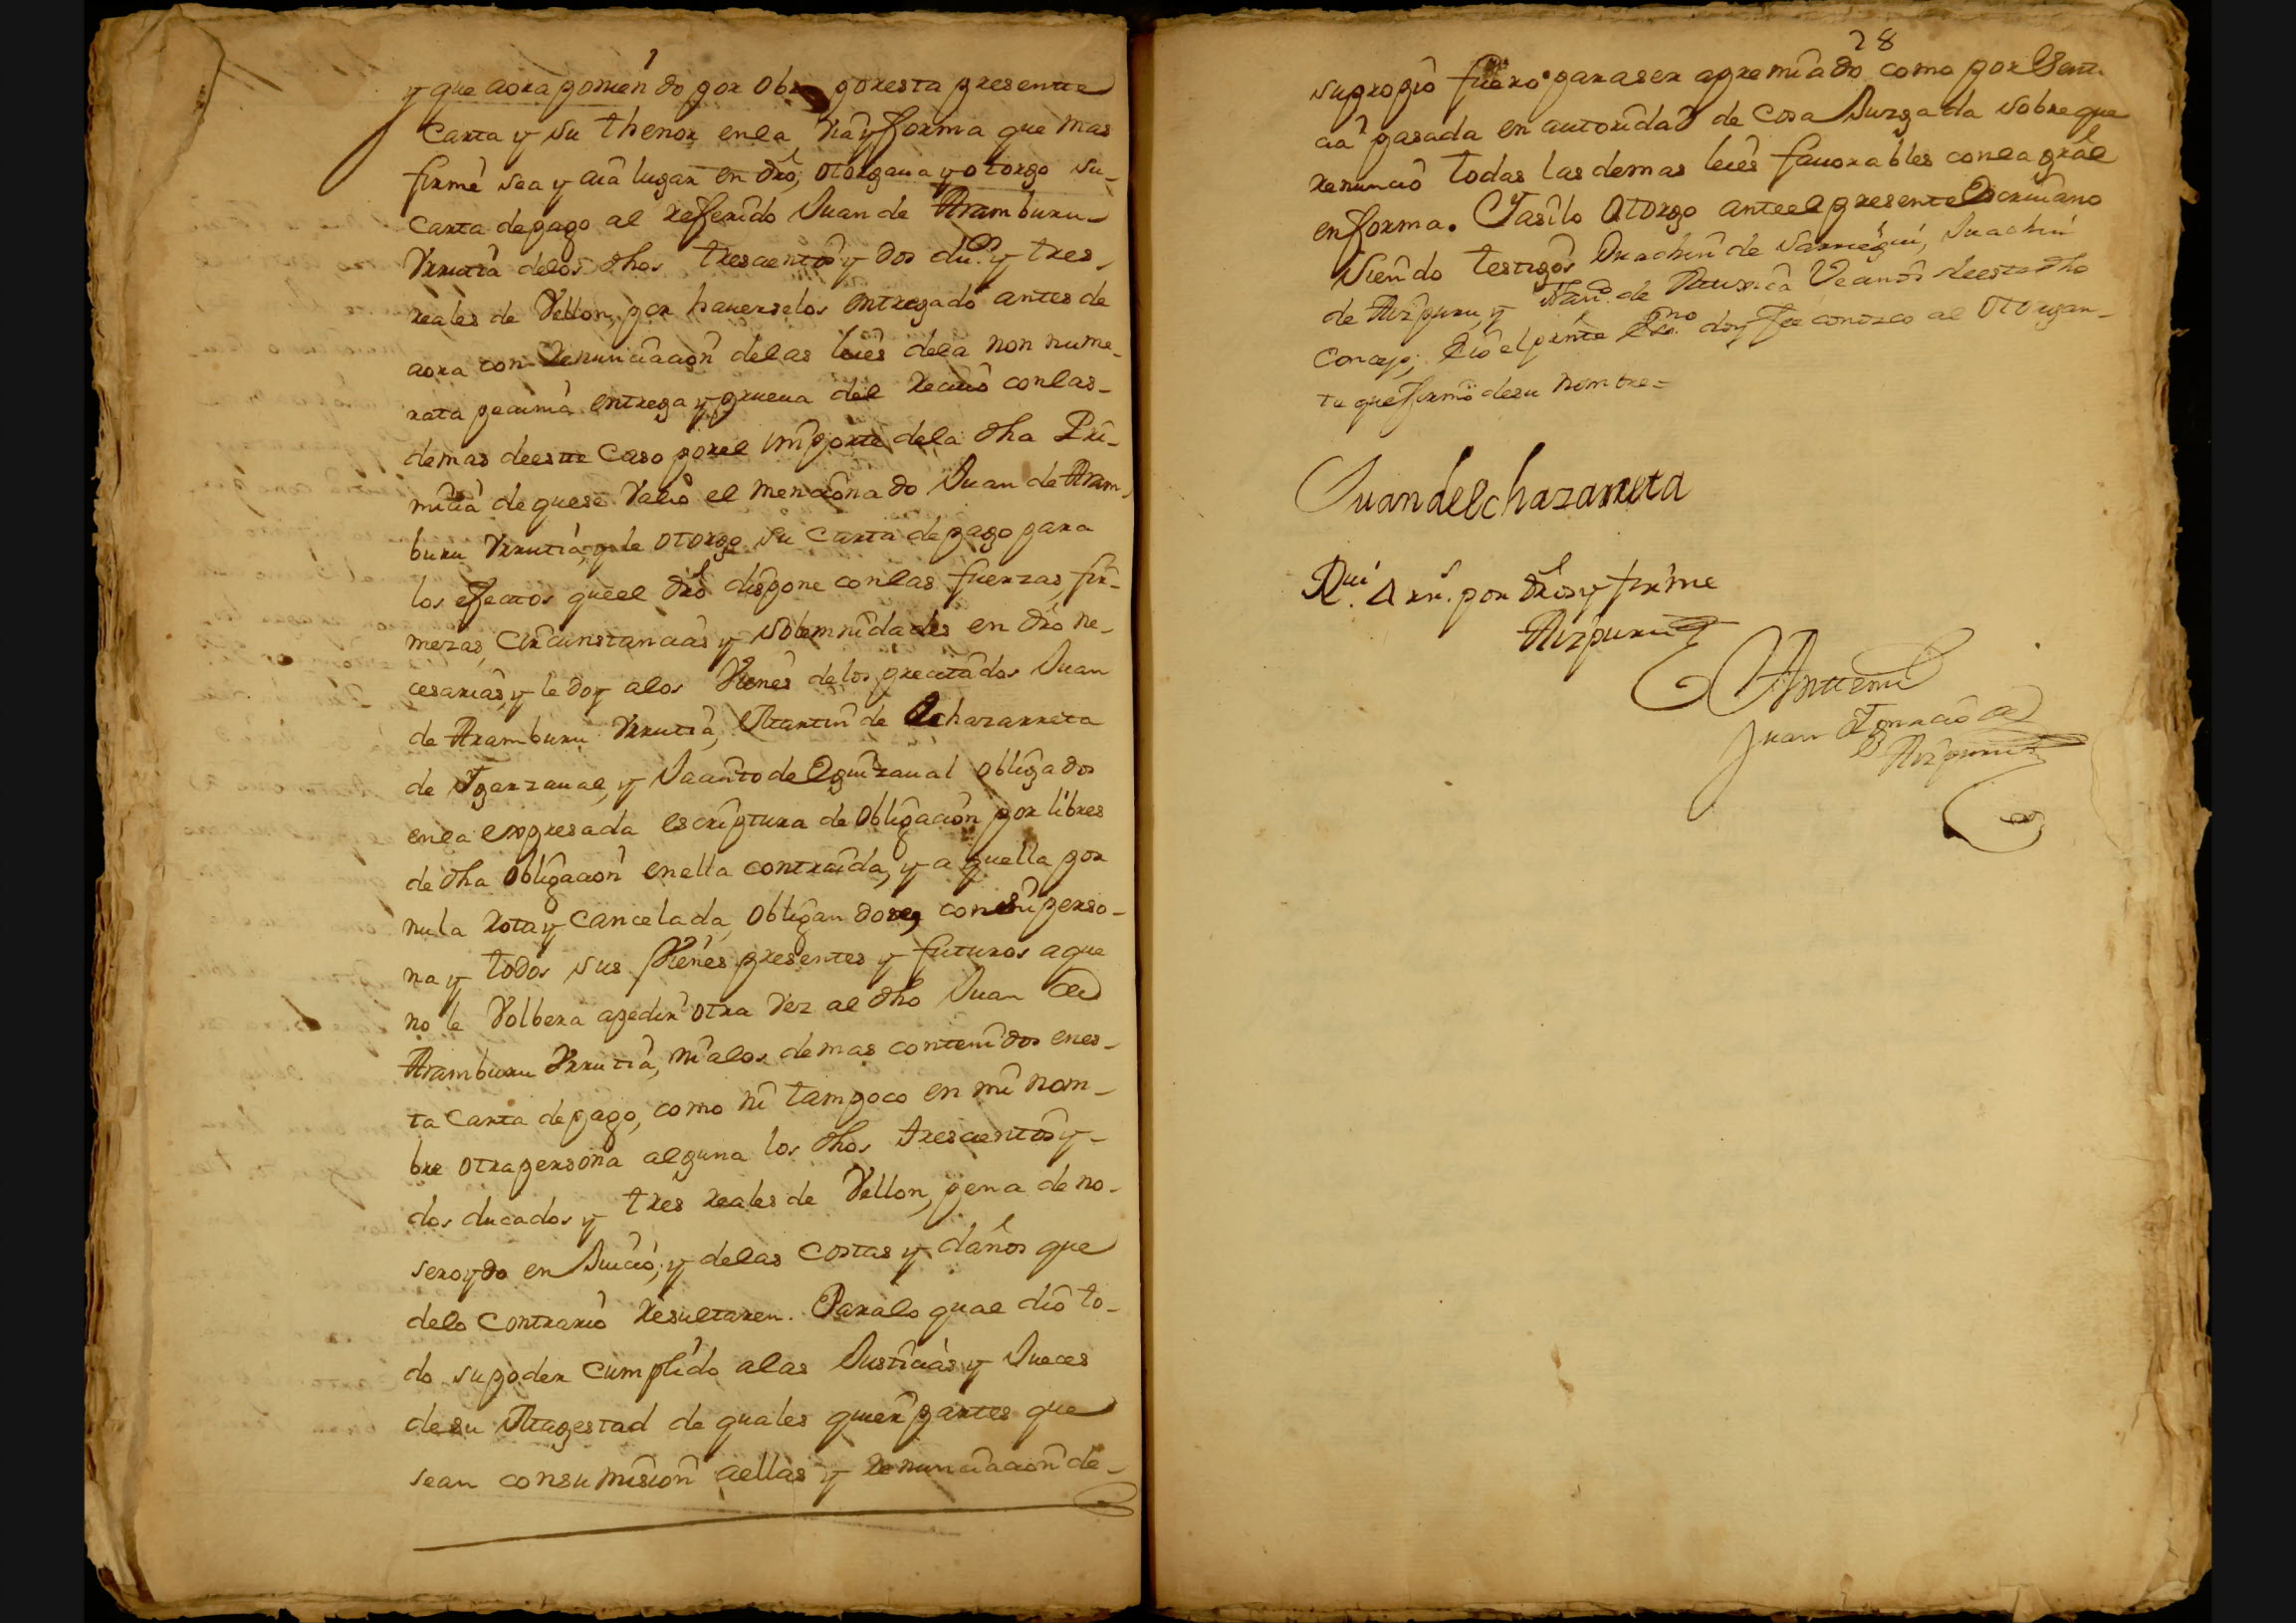 y que aora poniendo por obra por esta presente
Carta y su thenor en la via y forma que mas
firme sea y aia lugar en dro, otorgaua y otorgo su
Carta de pago al referido Juan de Aramburu
Vrrutia delos dhos trescientos y dos dus. y tres
reales de Vellon, por hauerselos entregado antes de
aora con Renunciacion delas leies dela non nume-
rata pecunia entrega y prueua del Reciuo con las
demas de este Caso por el importe dela dha Pri-
micia de que se Valio el mencionado Juan de Aram-
buru Vrrutia, y le otorgo su Carta de pago para
los efectos que el dro dispone con las fuerzas, fir-
mezas, circunstancias y solemnidades en dro ne-
cesarias, y le doy alos Vienes delos precitados Juan
de Aramburu Vrrutia, Martin de Echazarreta
de Igerzaual, y Jacinto de Eguizaual obligados
en la expresada escriptura de Obligacion por libres
de dha Obligacion en ella contraida, y a quella por
nula rota y Cancelada, Obligandose, con su perso-
na y todos sus Vienes presentes y futuros a que
no le Volbera a pedir otra Vez al dho Juan de
Aramburu Vrrutia, ni alos demas contenidos en es-
ta Carta de pago, como ni tampoco en mi nom-
bre otra persona alguna los dhos trescientos y
dos ducados y tres reales de Vellon, pena de no
ser oydo en Juicio, y delas Costas y daños que
delo Contrario Resultaren. Para lo qual dio to-
do su poder Cumplido alas Justicias y Jueces
de su Magestad de quales quier partes que
sean con sumision aellas y Renunciacion de
28
su propio fuero para ser apremiado como por Senten
cia pasada en autoridad de Cosa Juzgada sobre que
renuncio todas las demas leies fauorables con la gral
en forma. Y asi lo Otorgo ante el presente Escriuano
siendo testigos Juachin de Sarriegui, Juachin
de Aizpuru, y de Vecinos de este dho
Concejo; E io el prnte Essno. doy fee conozco al Otorgan-
te que firmo de su nombre=
Juan de Echazarreta
Rui. 4 rrs. por dros y firme
Aizpuru
Ante mi
Juan Ignacio de
Aizpuru